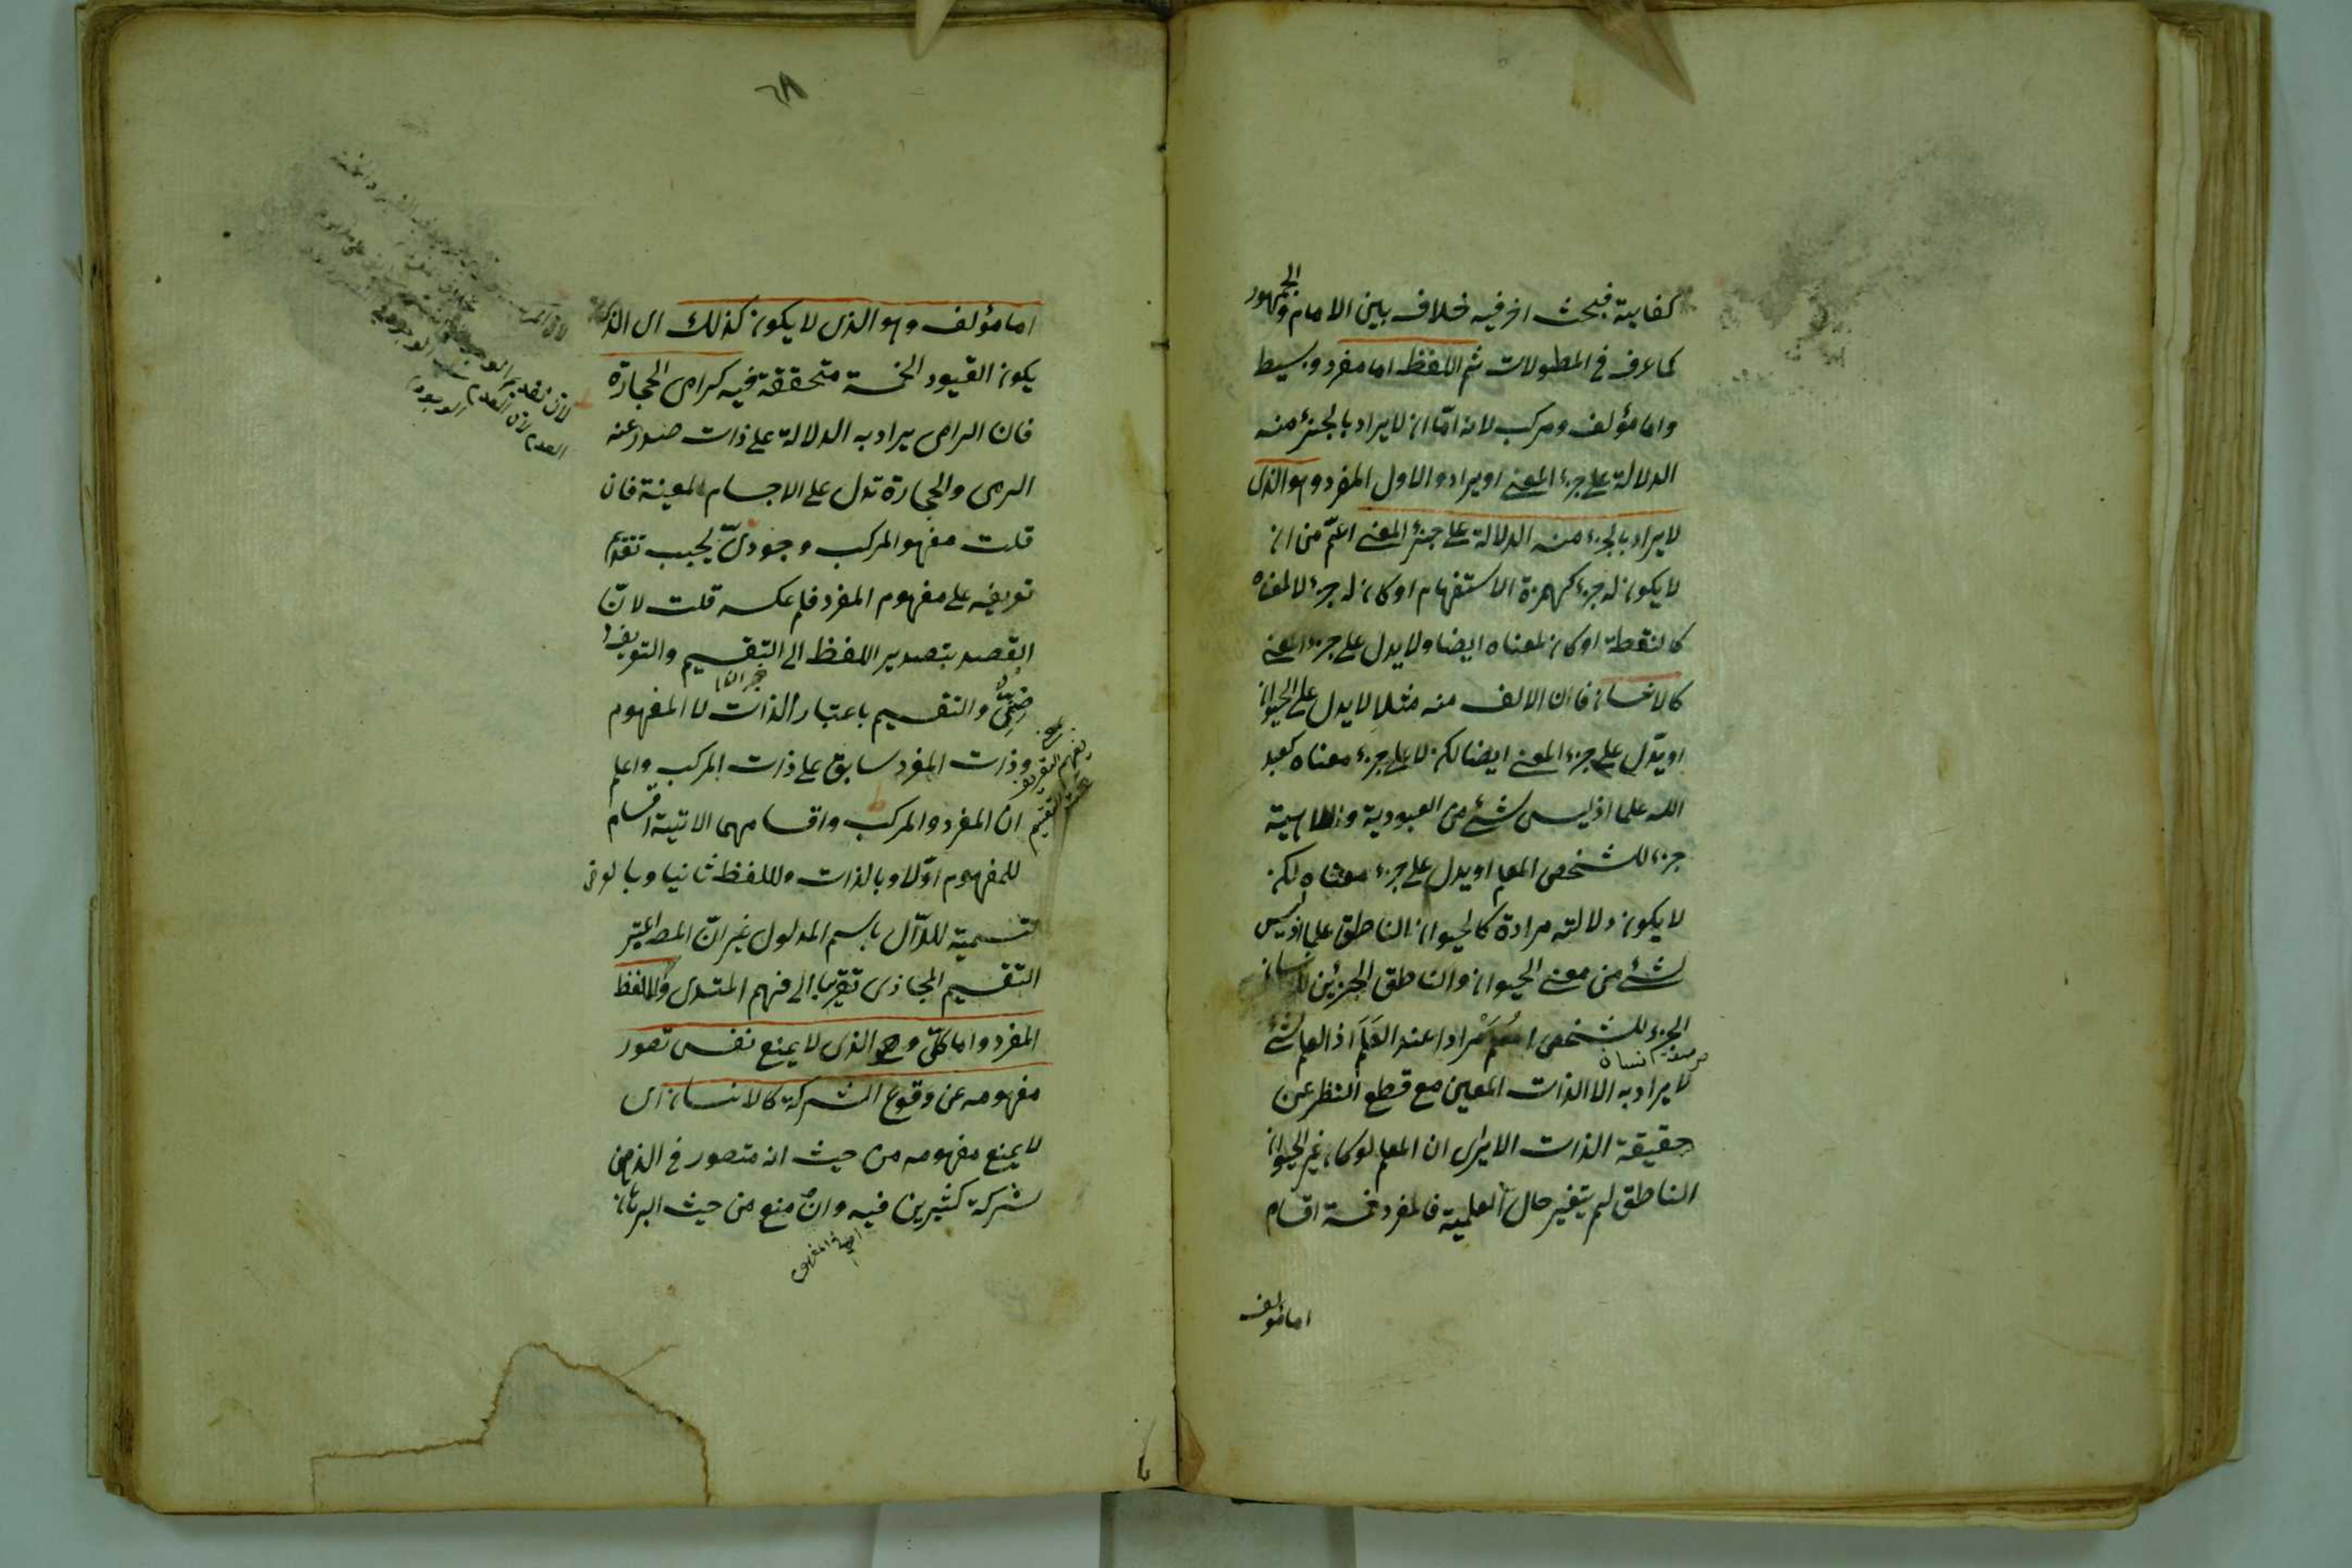 كفاية فبحث اخر فيه خلاف بين الامام والجمهور
كما عرف في المطولات ثم اللفظ اما مفرد وبسيط
واما مؤلف ومركب لانه امّا ان لا يراد بالجزء منه
الدلالة على جزء المعنى او يراد والاول المفرد وهو الذى
لا يراد بالجزء منه الدلالة على جزء المعنى اعمّ من ان
لا يكون له جزء كهمزة الاستفهام او كان له جزء لا لمعناه
كالنقطة او كان لمعناه ايضا ولا يدل على جزء المعنى
كالانسان فان الالف منه مثلا لا يدل على الحيوان
او يدّل على جزء المعنى ايضا لكن لا على جزء معناه كعبد
الله علما اذ ليس شئ من العبودية والالهية
جزء للشخص المعلم او يدل على جزء معناه لكن
لا يكون دلالته مرادة كالحيوان الناطق علما اذ ليس
شئ من معنى الحيوان والناطق الجزئين للانسان
الجزء للشخص المعلم مرادا عند العَلَم اذ العلم لشئ
لا يراد به الا الذات المعين مع قطع النظر عن
حقيقة الذات الا يرى ان المعلم لو كان غير الحيوان
الناطق لم يتغير حال العلمية فالمفرد خمسة اقسام
اما مؤلف
اما مؤلف وهو الذى لا يكون كذلك اى الذى
يكون القيود الخمسة متحققة فيه كرامى الحجارة
فان الرامى يراد به الدلالة على ذات صدر عنه
الرمى والحجارة تدل على الاجسام المعينة فان
قلت مفهو المركب وجودىّ يجب تقدّم
تعريفه على مفهوم المفرد فلم عكسه قلت لانّ
القصد بتصدير اللفظ الى التقسيم والتعريف
ضِمنىّ والتقسيم باعتبار الذات لا المفهوم
وذات المفرد سابق على ذات المركب واعلم
ان المفرد والمركب واقسامهما الاتية اقسام
للمفهوم اوّلا وبالذات وللفظ ثانيا وبالعرض
تسمية للدّال باسم المدلول غير انّ المص اعتبر
التقسيم المجازى تقريبا الى فهم المبتدى واللفظ
المفرد واما كلىّ وهو الذى لا يمنع نفس تصور
مفهومه عن وقوع الشركة كالانسان اى
لا يمنع مفهومه من حيث انه متصور فى الذهن
لشركة كثيرين فيه وان منع من حيث البرهان